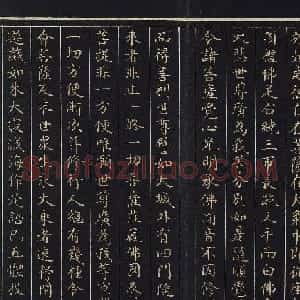 禮佛足右繞三匝長跪叉手而白佛
大悲世尊廣為我等分別如是隨順覺
令諸菩薩覺心光明承佛圓音不因修
而得善利世尊譬如大城外有四門隨
來者非止一路一切菩薩莊嚴佛國及
菩提非一方便唯願世尊廣為我等宣
一切方便漸次并修行人總有幾種令
會菩薩及末世眾生求大乘者速得開
遊戲如來大寂滅海作是語已五體投
Shufaziliao.com